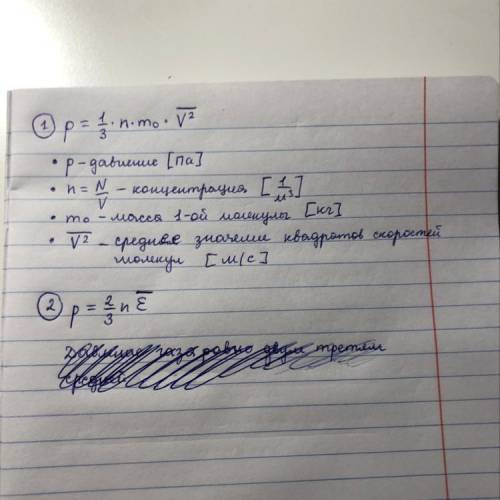 ① p = 1/3 · n · m₀ · V̅²
• p – давление [Па]
• n = N/V – концентрация [1/м³]
• m₀ – масса 1-ой молекулы [кг]
• V̅² – среднее значение квадратов скоростей
молекул [м/с]
② p = 2/3 n E̅
Давление газа равно двум третям
средней